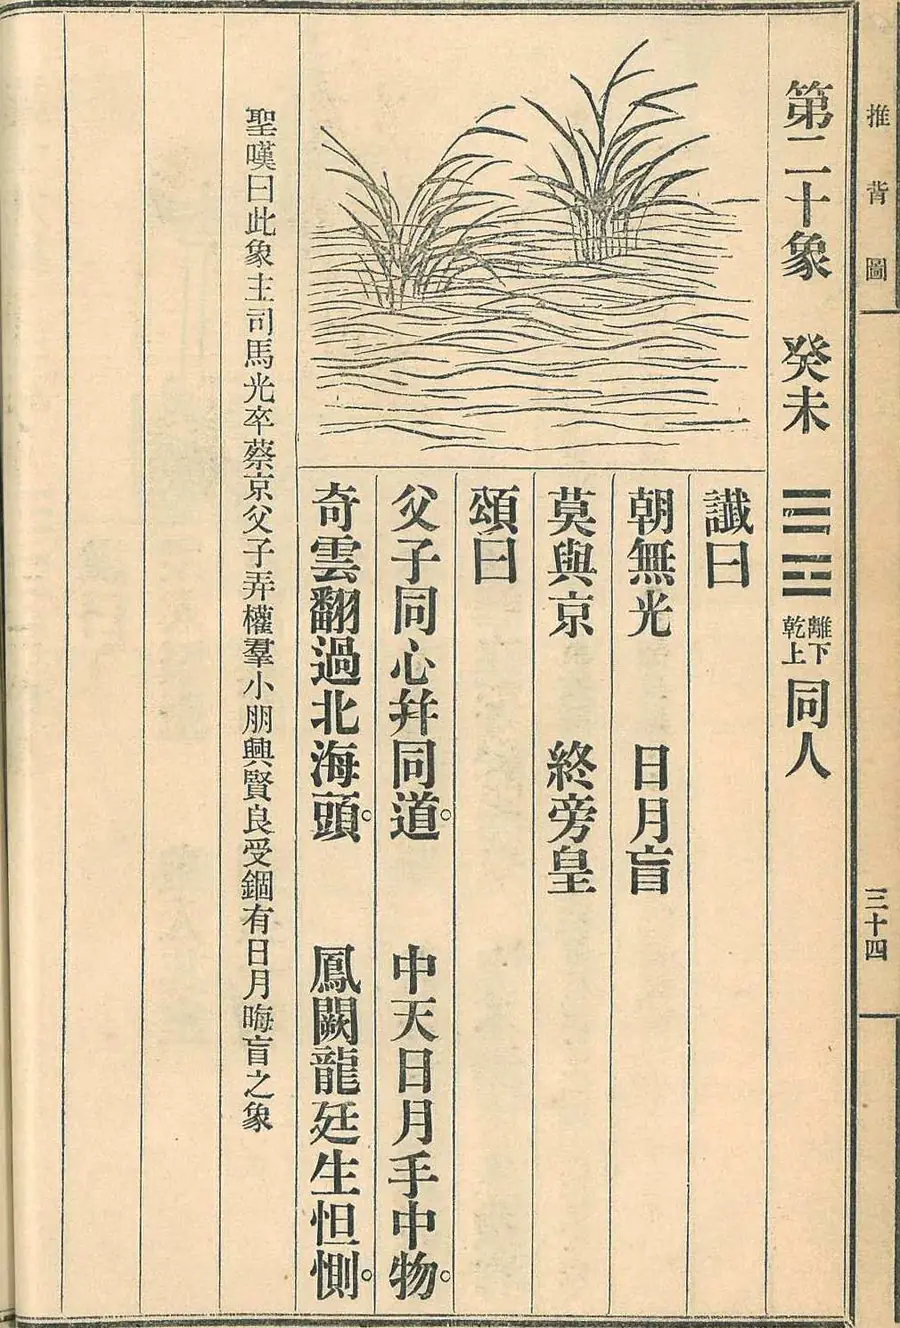 推背圖
三十四
第二十象 癸未 ䷌ 離下乾上 同人
讖曰
朝無光 日月盲
莫與京 終旁皇
頌曰
父子同心幷同道。 中天日月手中物。
奇雲翻過北海頭。 鳳闕龍廷生怛惻。
聖嘆曰此象主司馬光卒蔡京父子弄權羣小朋興賢良受錮有日月晦盲之象